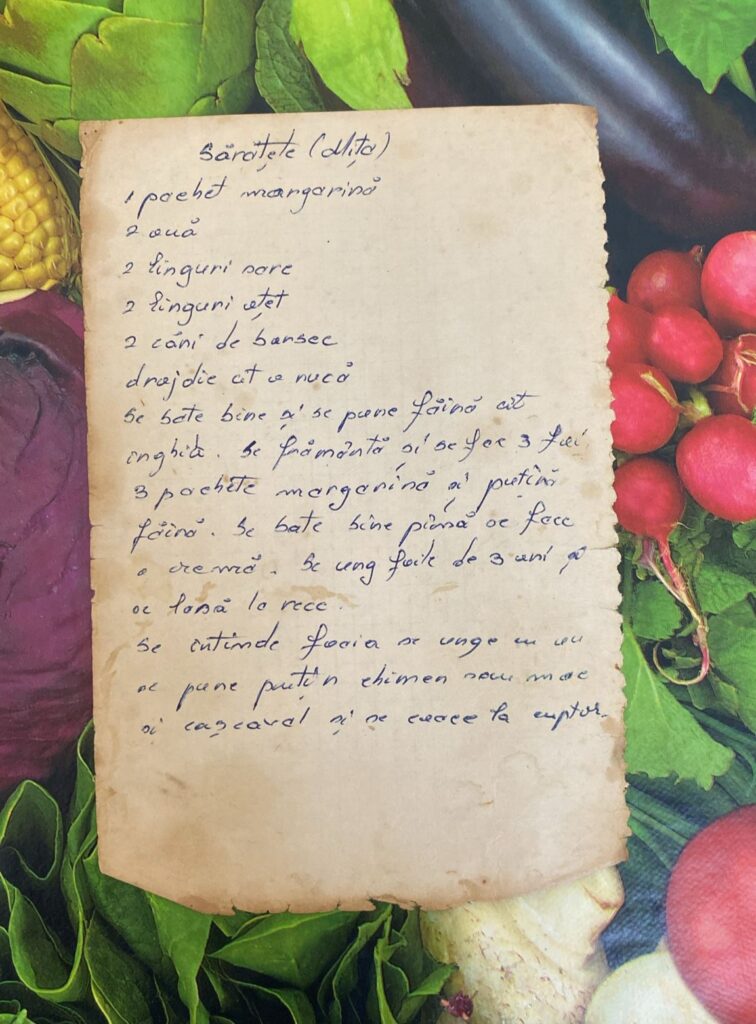 Sărățele (Mița)
1 pachet margarină
2 ouă
2 linguri sare
2 linguri oțet
2 căni de borsec
drojdie cît o nucă
Se bate bine și se pune făină cît
înghite. Se frămîntă și se fac 3 foi
3 pachete margarină și puțină
făină. Se bate bine pînă se face
o cremă. Se ung foile de 3 ori și
se lasă la rece.
Se întinde foaia se unge cu ou
se pune puțin chimen sau mac
și cașcaval și se coace la cuptor.